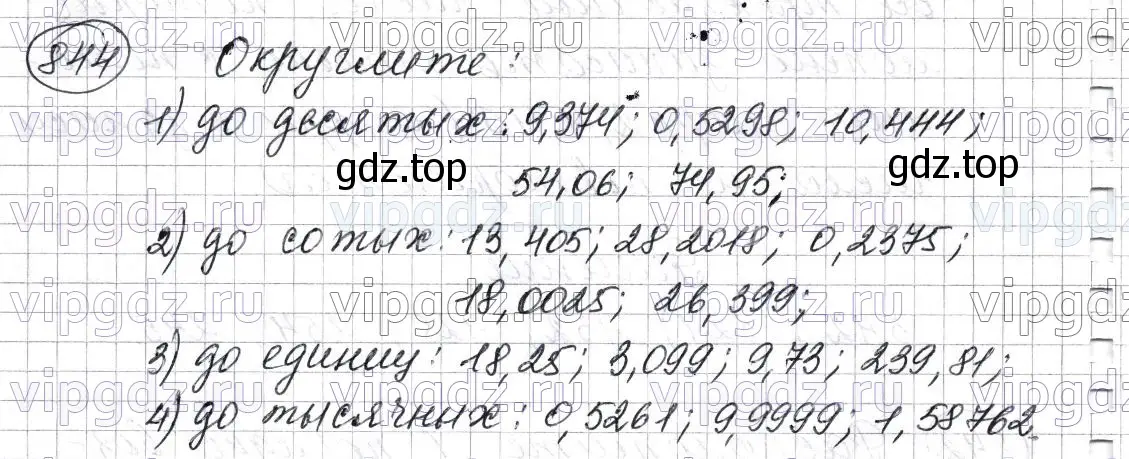 844 Округлите:
1) до десятых: 9,374; 0,5298; 10,444;
54,06; 74,95;
2) до сотых: 13,405; 28,2018; 0,2375;
18,0025; 26,399;
3) до единиц: 18,25; 3,099; 9,73; 239,81;
4) до тысячных: 0,5261; 9,9999; 1,58762.
gdz.top gdz.top
vipgdz.ru vipgdz.ru vipgdz.ru vipgdz.ru